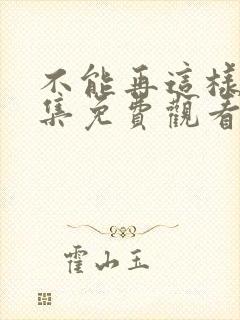 不能再這樣
集免費觀看
霍山玉